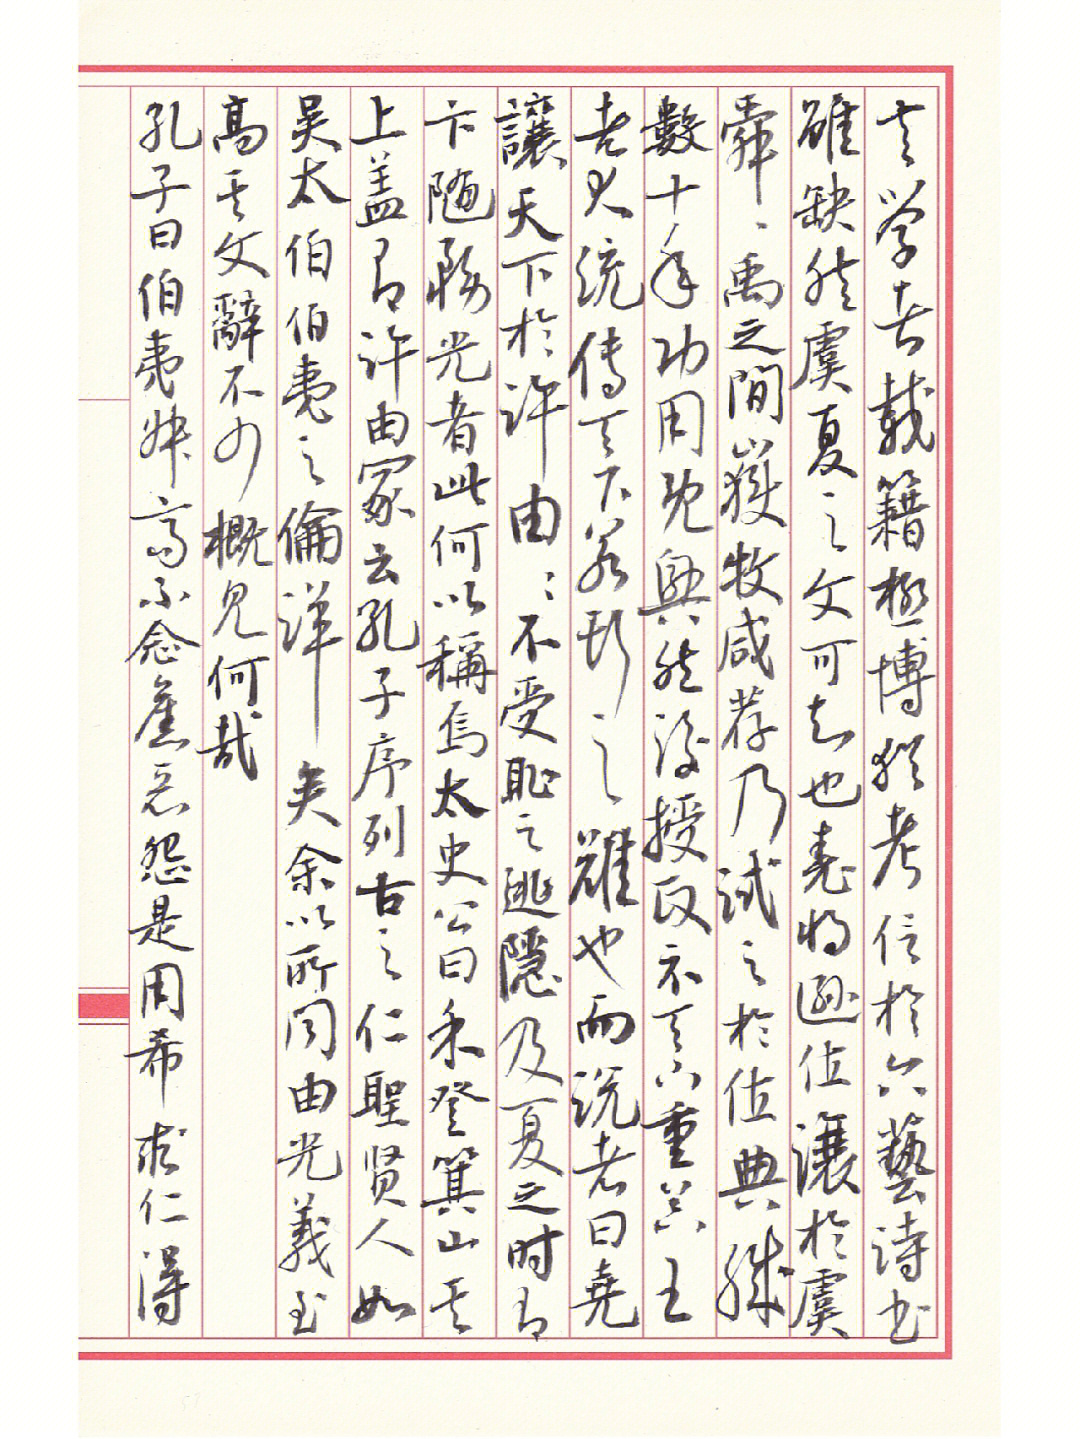 夫学者载籍極博猶考信於六藝诗书
雖缺然虞夏之文可知也堯将遜位讓於虞
舜〻禹之間嶽牧咸荐乃试之於位典職
數十年功用既興然後授政示天下重器王
者大统传天下若斯之難也而说者曰堯
讓天下於许由〻不受恥之逃隱及夏之时有
卞随務光者此何以稱焉太史公曰余登箕山其
上盖有许由冢云孔子序列古之仁聖贤人如
吴太伯伯夷之倫详矣余以所闻由光義至
高其文辭不少概见何哉
孔子曰伯夷叔齐不念舊惡怨是用希求仁得